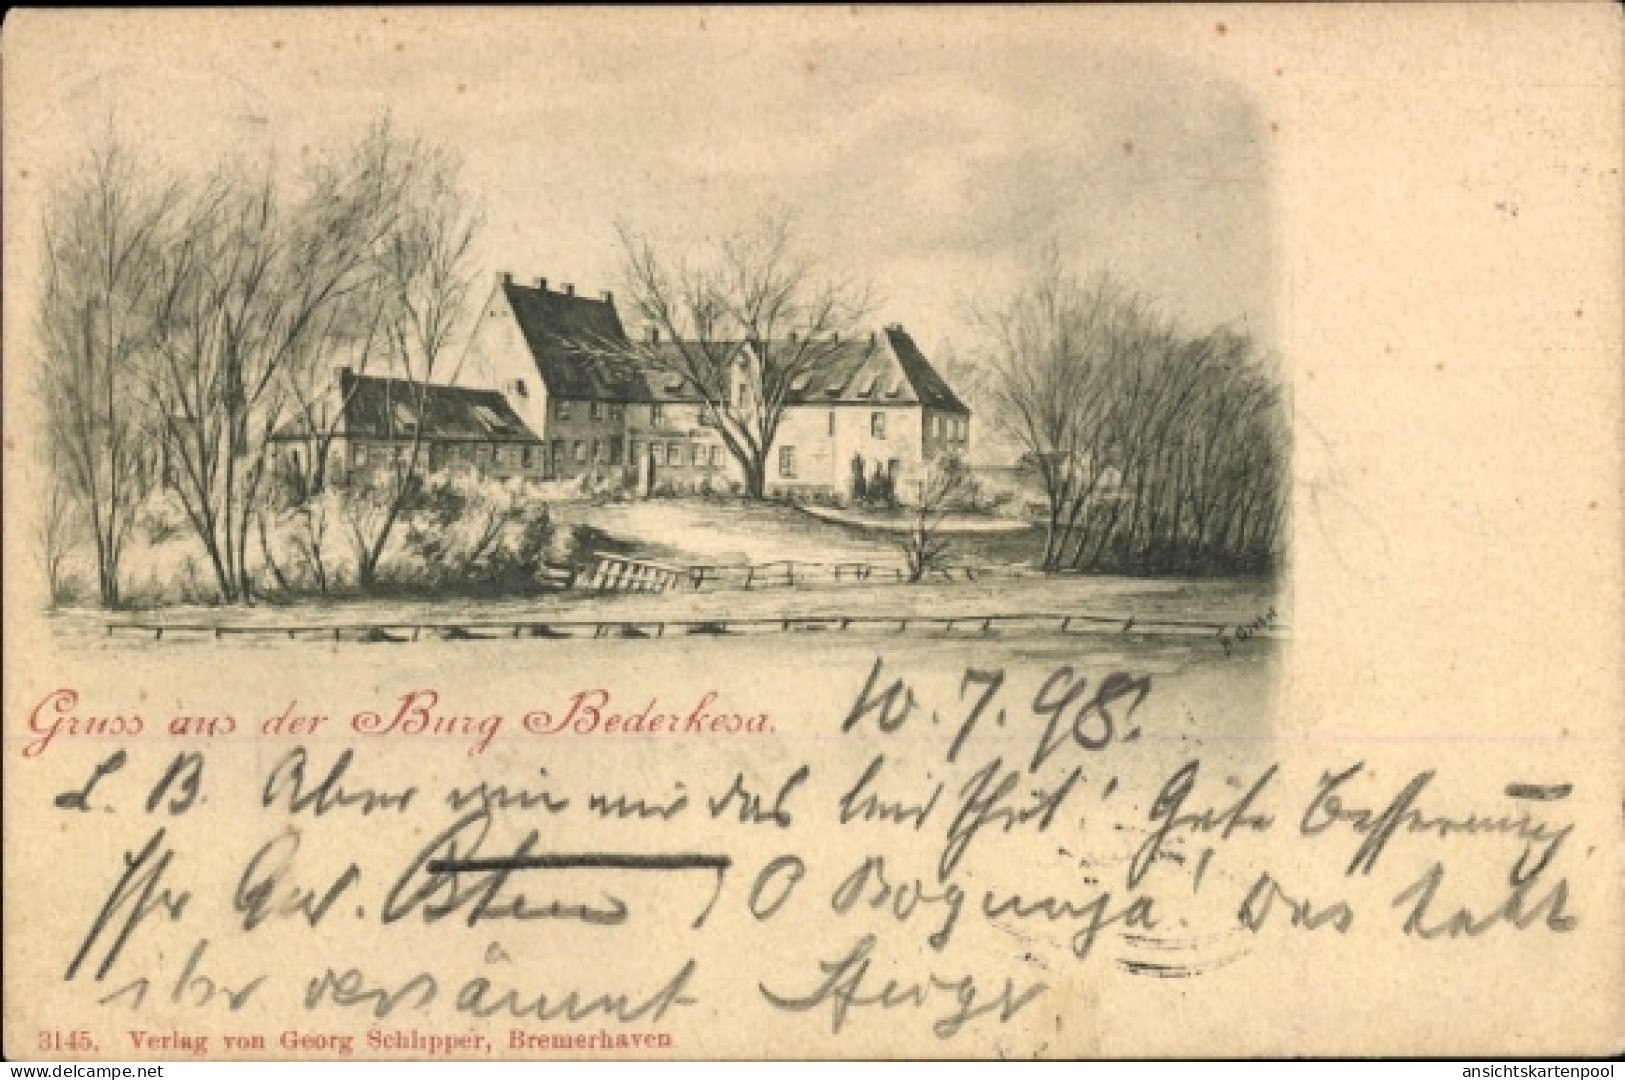 Gruss aus der Burg Bederkesa.
10.7.98.
L. B. Aber wie mir das leid thut! Gute Besserung.
Ihr O Bogumja! Das habt
ihr versäumt
3145. Verlag von Georg Schlipper, Bremerhaven
akpool.de
ansichtskartenpool